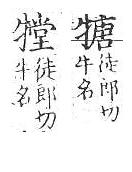 徒郎切
牛名
徒郎切
牛名